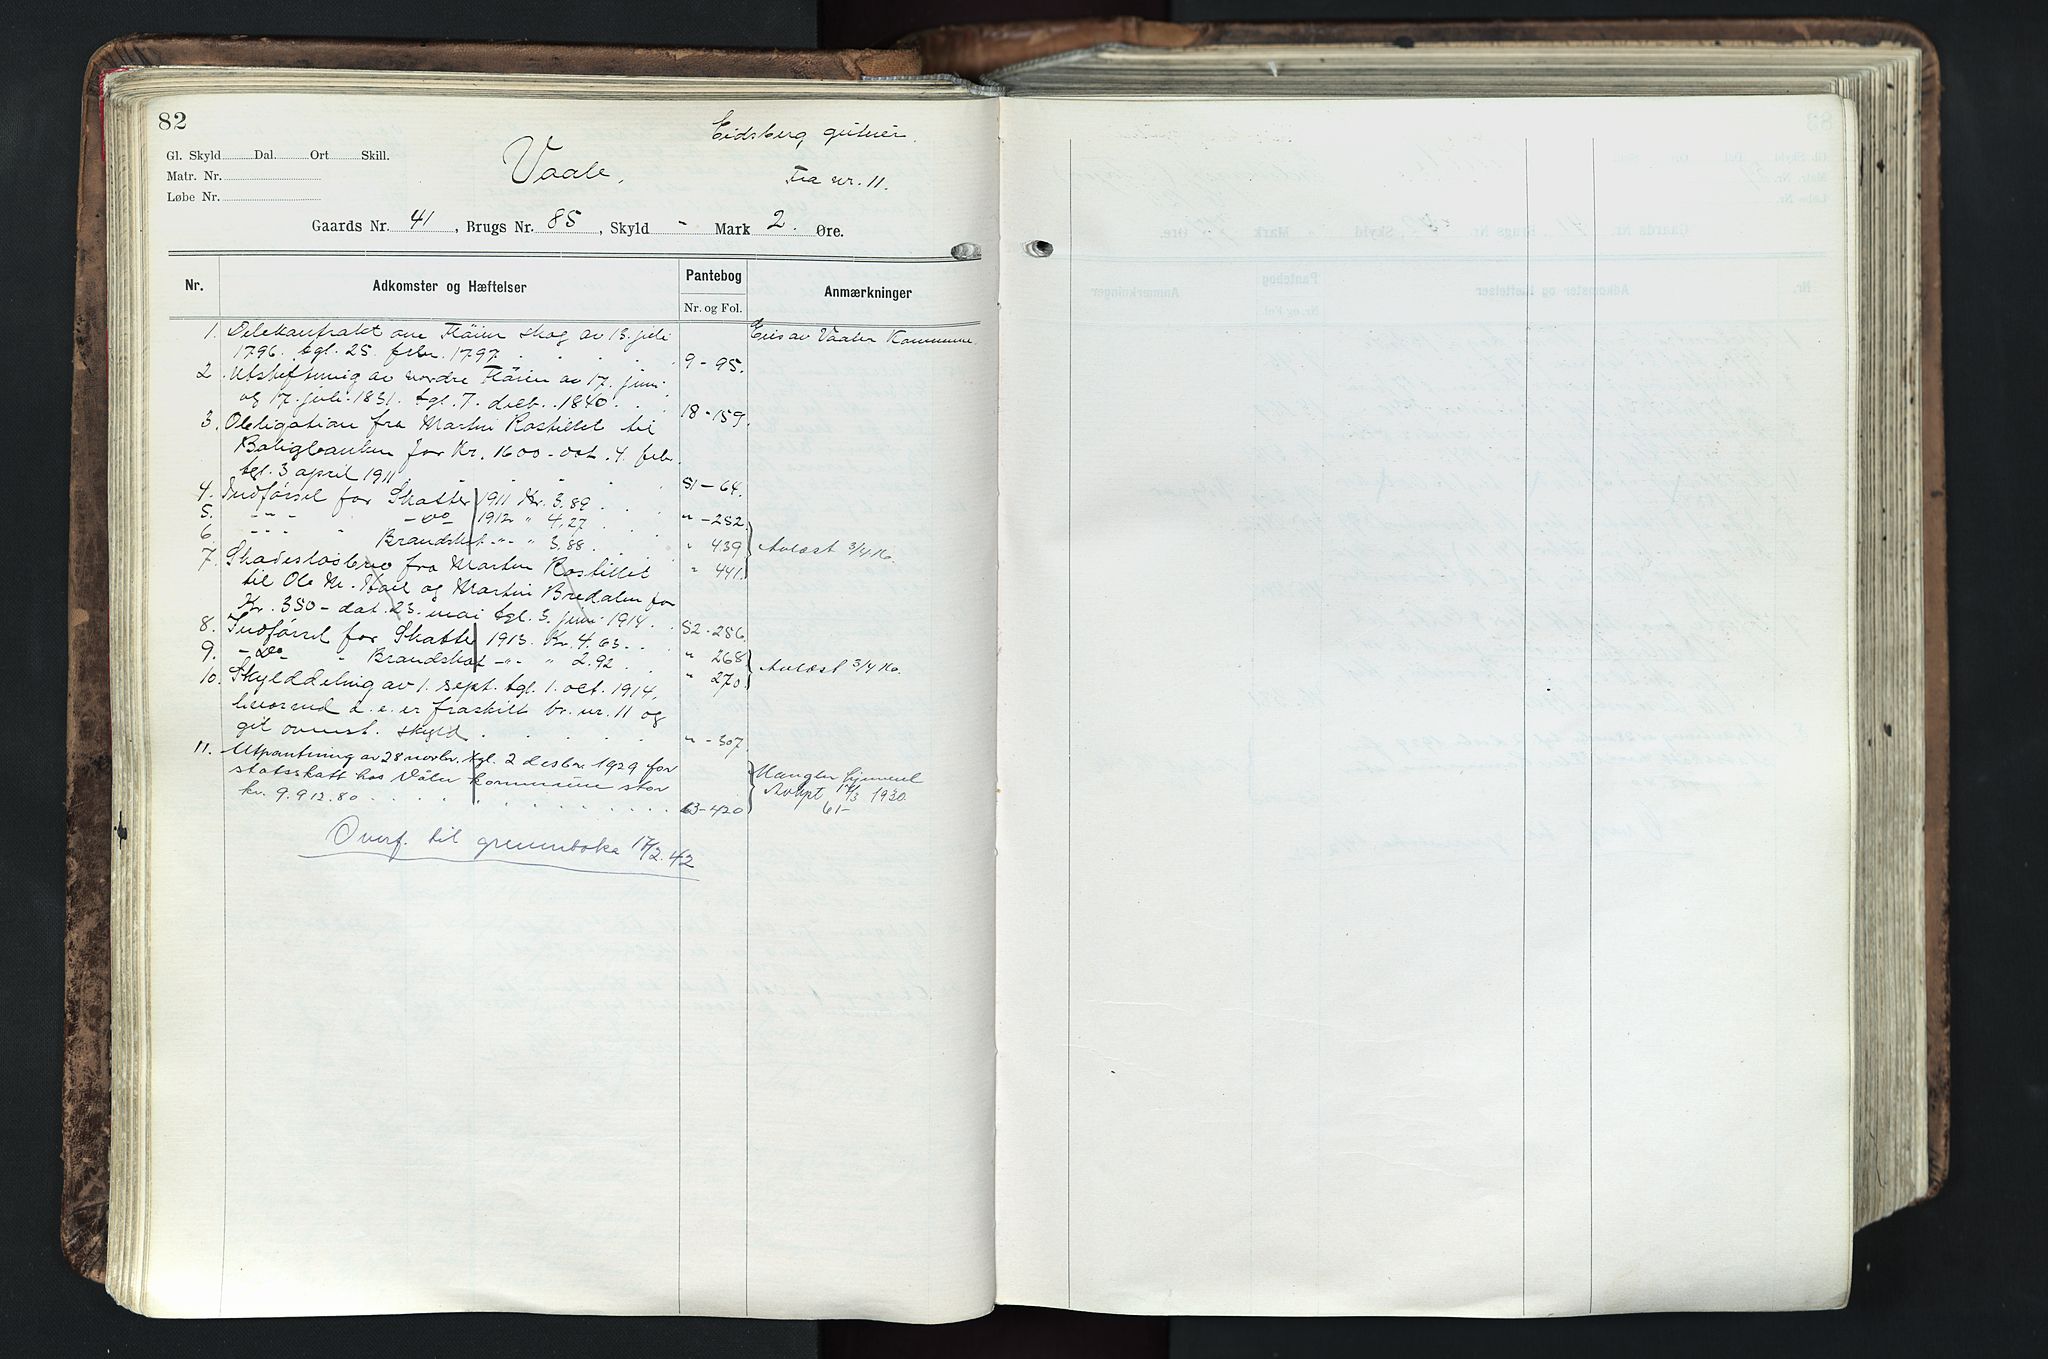 82
Eidsberg
Vaale.
Fra nr. 11.
Gl. Skyld Dal. Ort Skill.
Matr. Nr.
Løbe Nr.
Gaards Nr. 41, Brugs Nr. 85, Skyld - Mark 2. Øre.
Nr. Adkomster og Hæftelser Pantebog Anmærkninger
Nr. og Fol.
1. Delekontrakt om Fløien skog av 13. juli Eies av Vaaler Kommune.
1796. tgl. 25. febr. 1797. 9 - 95.
2. Utskiftning av nordre Fløien av 17. juni
og 17. juli 1831. tgl. 7. decb. 1840. 18 - 159.
3. Obligation fra Martin Rostillet til
Boligbanken for Kr. 1600 - dat. 4. febr.
tgl. 3 april 1911 51 - 64.
4. Indførsel for Skatter 1911 Kr. 3.89 " - 252.
5. - " - - Do 1912 " 4.27 " 439
6. - " - Brandskat - " - " 3.88. " 441. Avlæst 3/4 16.
7. Skadesløsbrev fra Martin Rostillet
til Ole M. og Martin Bredalen for
Kr. 350 - dat. 23. mai tgl. 3. juni 1914. 52 - 256.
8. Indførsel for Skatter 1913. Kr. 4.63 " 268
9. - Do - " Brandskat - " - " 2.92 " 270. Avlæst 3/4 16.
10. Skylddeling av 1. sept. tgl. 1. oct. 1914,
hvorved d. e. er fraskilt br. nr. 11 og
git ovenst. skyld. " - 307
11. Utpantning av 28 novbr. tgl. 2 desbr. 1929 for
statsskatt hos Våler kommune stor Mangler hjemmel
kr. 9.912.80 63 - 420 Avlyst 17/3 1930.
61 -
Overf. til grunnboka 17/2.42